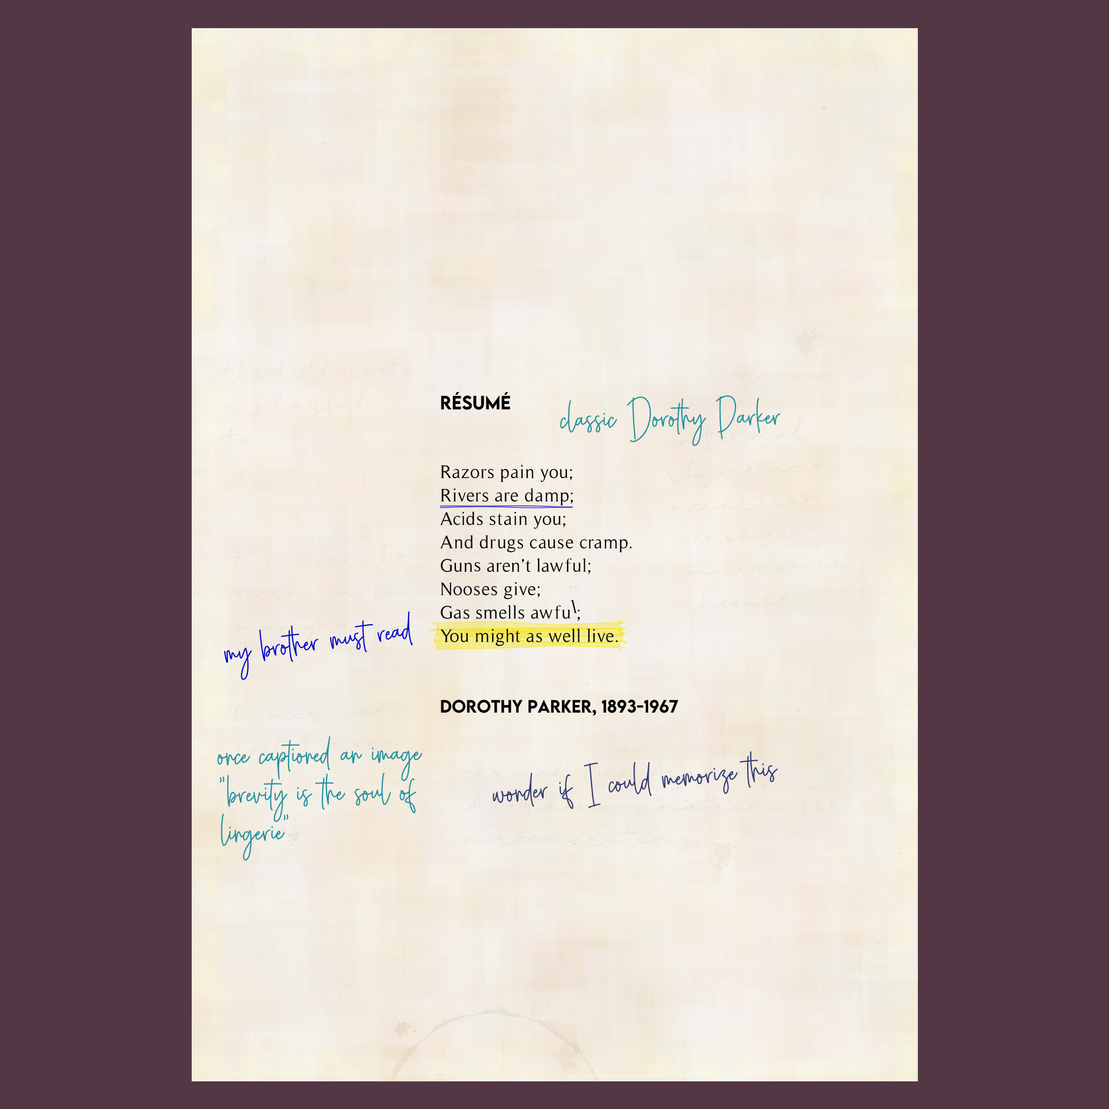 RÉSUMÉ
classic Dorothy Parker
Razors pain you;
Rivers are damp;
Acids stain you;
And drugs cause cramp.
Guns aren’t lawful;
Nooses give;
Gas smells awful;
You might as well live.
my brother must read
DOROTHY PARKER, 1893-1967
once captioned an image
"brevity is the soul of
lingerie"
wonder if I could memorize this